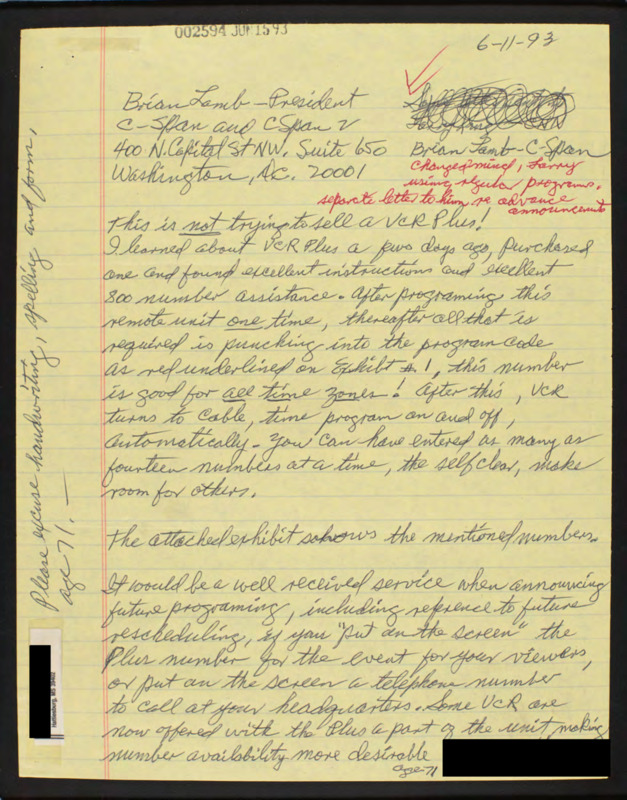 002594 JUN 15 93
6-11-93
Brian Lamb - President
C-Span and C Span 2
400 N. Capital St NW. Suite 650
Washington, D.C. 20001
Brian Lamb - C-Span
changed mind, Larry
using regular programs.
separate letter to him re advance
announcements
This is not trying to sell a VCR Plus!
I learned about VCR Plus a few days ago, purchased
one and found excellent instructions and exellent
800 number assistance. After programing this
remote unit one time, thereafter all that is
required is punching into the program code
as red underlined on Exhibt #1, this number
is good for all time zones! After this, VCR
turns to cable, time program on and off,
automatically - you can have entered as many as
fourteen numbers at a time, the self clear, make
room for others.
The attached exhibit shows the mentioned numbers.
It would be a well received service when announcing
future programing, including reference to future
rescheduling, if you "put on the screen" the
Plus number for the event for your viewers,
or put on the screen a telephone number
to call at your headquarters. Some VCR are
now offered with the Plus a part of the unit, making
number availability more desirable
age-71
Please excuse handwriting, spelling and form,
age 71. -
Hattiesburg, MS 39402